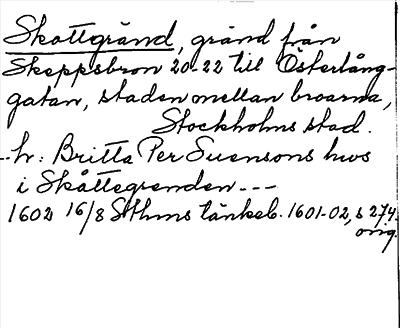 Skottgränd, gränd från
Skeppsbron 20-22 till Österlång-
gatan, staden mellan broarna,
Stockholms stad.
--hr: Britta Per Suensons hws
i Skåttegrenden ---
1602 16/8 Sthms tänkeb. 1601-02, s 274.
orig.